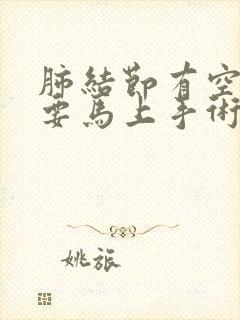 肺結節有空
要馬上手術
姚旅